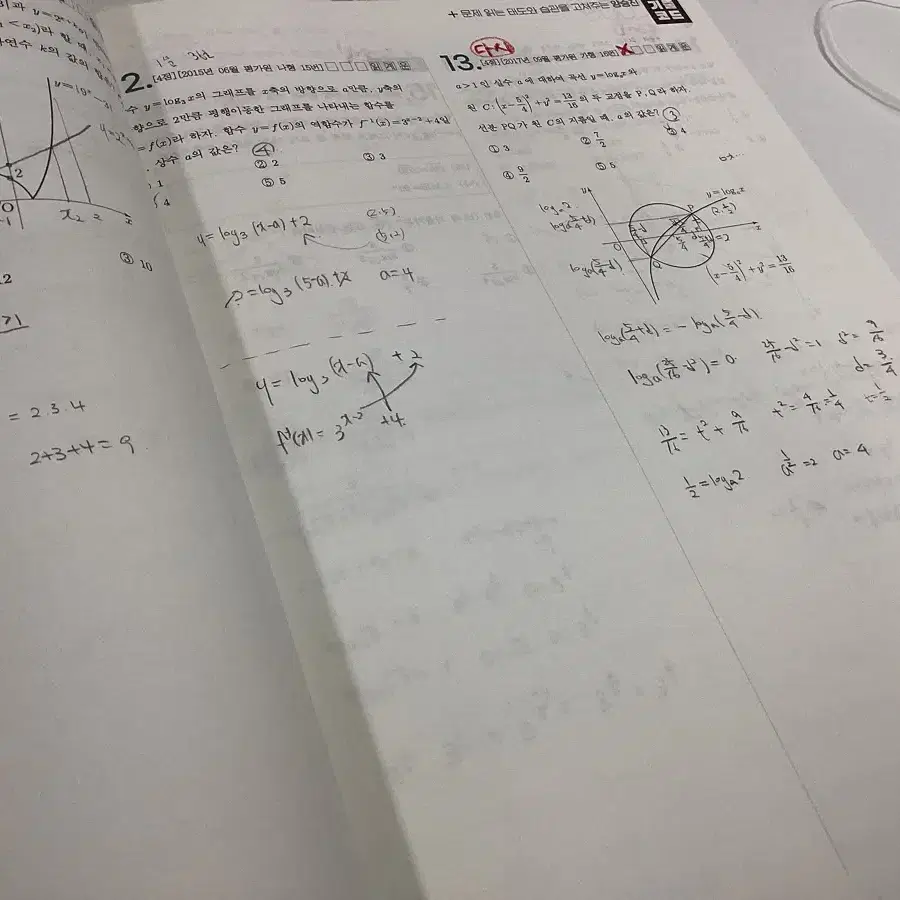 + 문제 읽는 태도와 습관을 고쳐주는
y=10ˣ-
2
O
-1
x₂
x
③ 10
= 2·3·4
2+3+4=9
2. [4점][2015년 06월 평가원 나형 15번]
수 y=log₃x의 그래프를 x축의 방향으로 a만큼, y축의
향으로 2만큼 평행이동한 그래프를 나타내는 함수를
=f(x)라 하자. 함수 y=f(x)의 역함수가 f⁻¹(x)=3ˣ⁻²+4일
, 상수 a의 값은?
④
1
② 2
③ 3
4
⑤ 5
y=log₃(x-a)+2
(2,5)
(5,2)
2=log₃(5-a)+2 a=4
y=log₃(x-a)+2
f⁻¹(x)=3ˣ⁻²+4
다시
13. [4점][2017년 06월 평가원 가형 16번]
a>1인 실수 a에 대하여 곡선 y=logₐx와
원 C:(x-5/4)²+y²=13/16의 두 교점을 P, Q라 하자.
선분 PQ가 원 C의 지름일 때, a의 값은?
③
① 3
② 7/2
③ 4
④ 9/2
⑤ 5
y
y=logₐx
logₐ2
P
(2,1/2)
O
x
Q
logₐ(5/4-d)
(x-5/4)²+y²=13/16
logₐ(5/4+d)=-logₐ(5/4-d)
logₐ(25/16-d²)=0 25/16-d²=1 d²=9/16
d=3/4
13/16=t²+9/16 t²=4/16=1/4 t=1/2
1/2=logₐ2 a=4